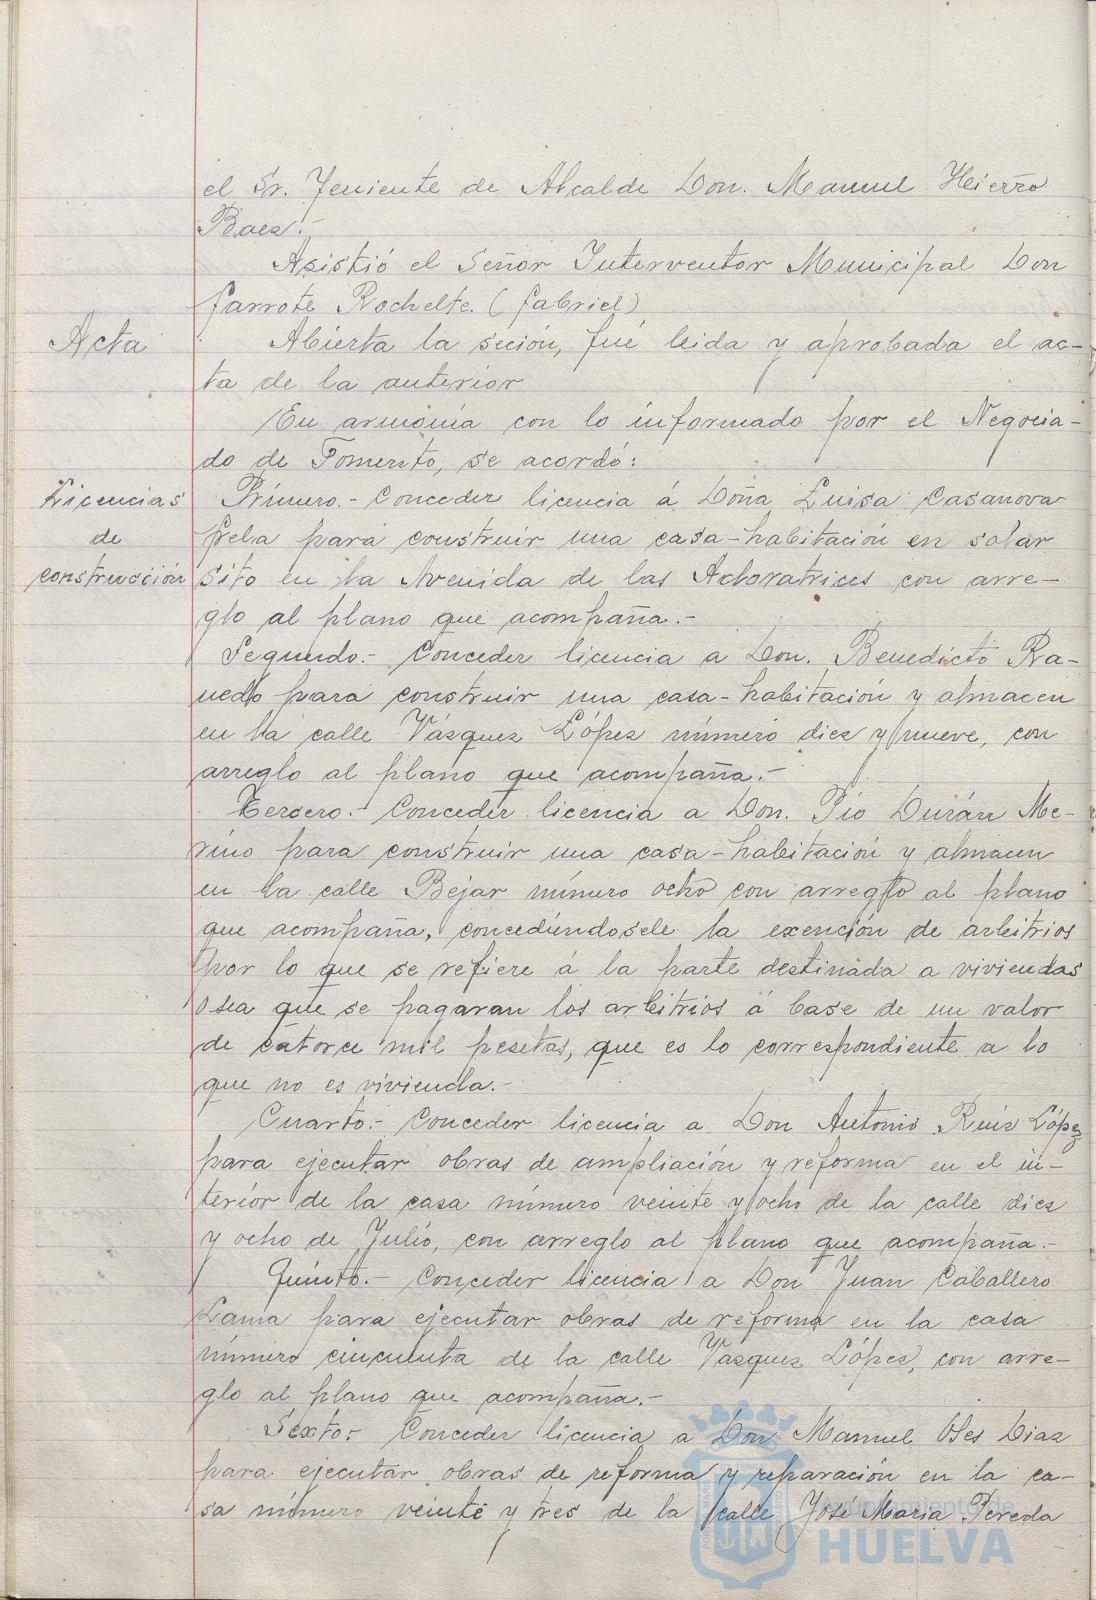 el Sr. Teniente de Alcalde Don. Manuel Hierro
Baez.-
Asistió el Señor Interventor Municipal Don
Garrote Rochelte. (Gabriel)
Acta
Abierta la seción, fué leida y aprobada el ac-
ta de la anterior
En armonía con lo informado por el Negocia-
do de Fomento, se acordó:
Licencias
de
construcción
Primero.- Conceder licencia á Doña Luisa Casanova
para construir una casa-habitación en solar
sito en la Avenida de las Adoratrices con arre-
glo al plano que acompaña.-
Segundo.- Conceder licencia a Don. Benedicto Ra-
nedo para construir una casa-habitación y almacen
en la calle Vásquez López número diez y nueve, con
arreglo al plano que acompaña.-
Tercero.- Conceder licencia a Don. Pío Durán Me-
rino para construir una casa-habitación y almacen
en la calle Bejar número ocho con arreglo al plano
que acompaña, concediéndosele la exención de arbitrios
por lo que se refiere á la parte destinada a viviendas
osea que se pagaran los arbitrios á base de un valor
de catorce mil pesetas, que es lo correspondiente a lo
que no es vivienda.-
Cuarto.- Conceder licencia a Don Antonio Ruiz López
para ejecutar obras de ampliación y reforma en el in-
terior de la casa número veinte y ocho de la calle diez
y ocho de Julio, con arreglo al plano que acompaña.-
Quinto.- Conceder licencia a Don Juan Caballero
Lama para ejecutar obras de reforma en la casa
número cincuenta de la calle Vázquez López, con arre-
glo al plano que acompaña.-
Sexto.- Conceder licencia a Don Manuel Oses Diaz
para ejecutar obras de reforma y reparación en la ca-
sa número veinte y tres de la calle José Maria Pereda
Ayuntamiento de
HUELVA